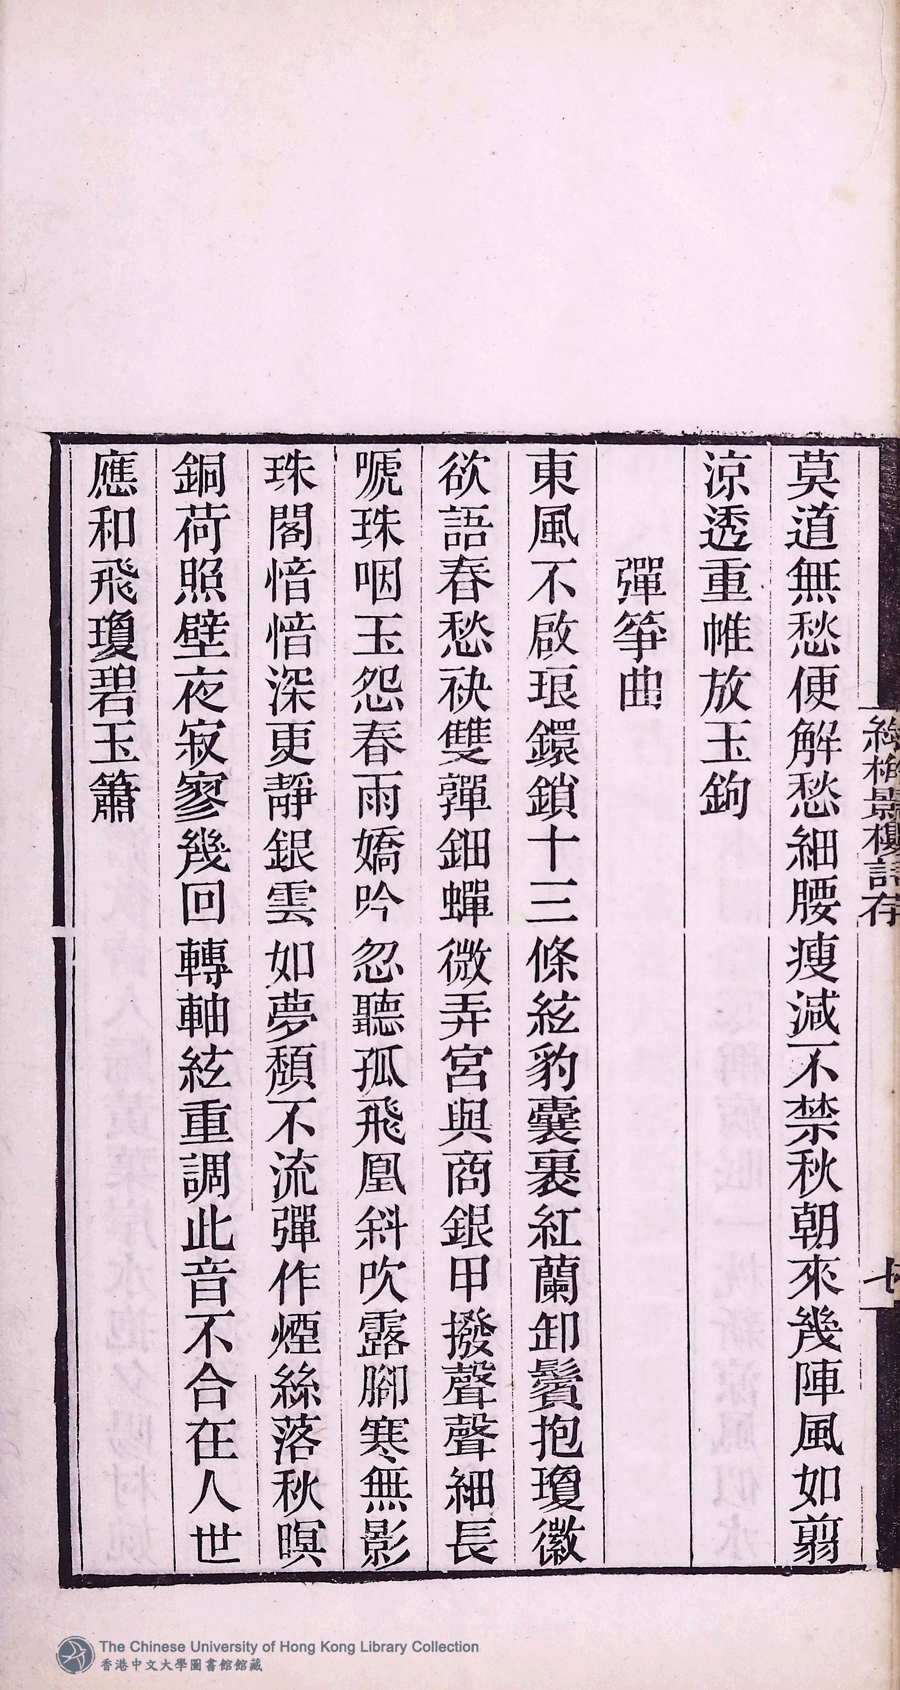 莫道無愁便解愁細腰瘦減不禁秋朝來幾陣風如翦
涼透重帷放玉鉤
彈箏曲
東風不啟琅鐶鎖十三條絃豹囊裹紅蘭卸鬢抱瓊徽
欲語春愁袂雙嚲鈿蟬微弄宮與商銀甲撥聲聲細長
嗁珠咽玉怨春雨嬌吟忽聽孤飛凰斜吹露腳寒無影
珠閣愔愔深更靜銀雲如夢頽不流彈作煙絲落秋暝
銅荷照壁夜寂寥幾回轉軸絃重調此音不合在人世
應和飛瓊碧玉簫
綠梅影樓詩存
七
The Chinese University of Hong Kong Library Collection
香港中文大學圖書館館藏